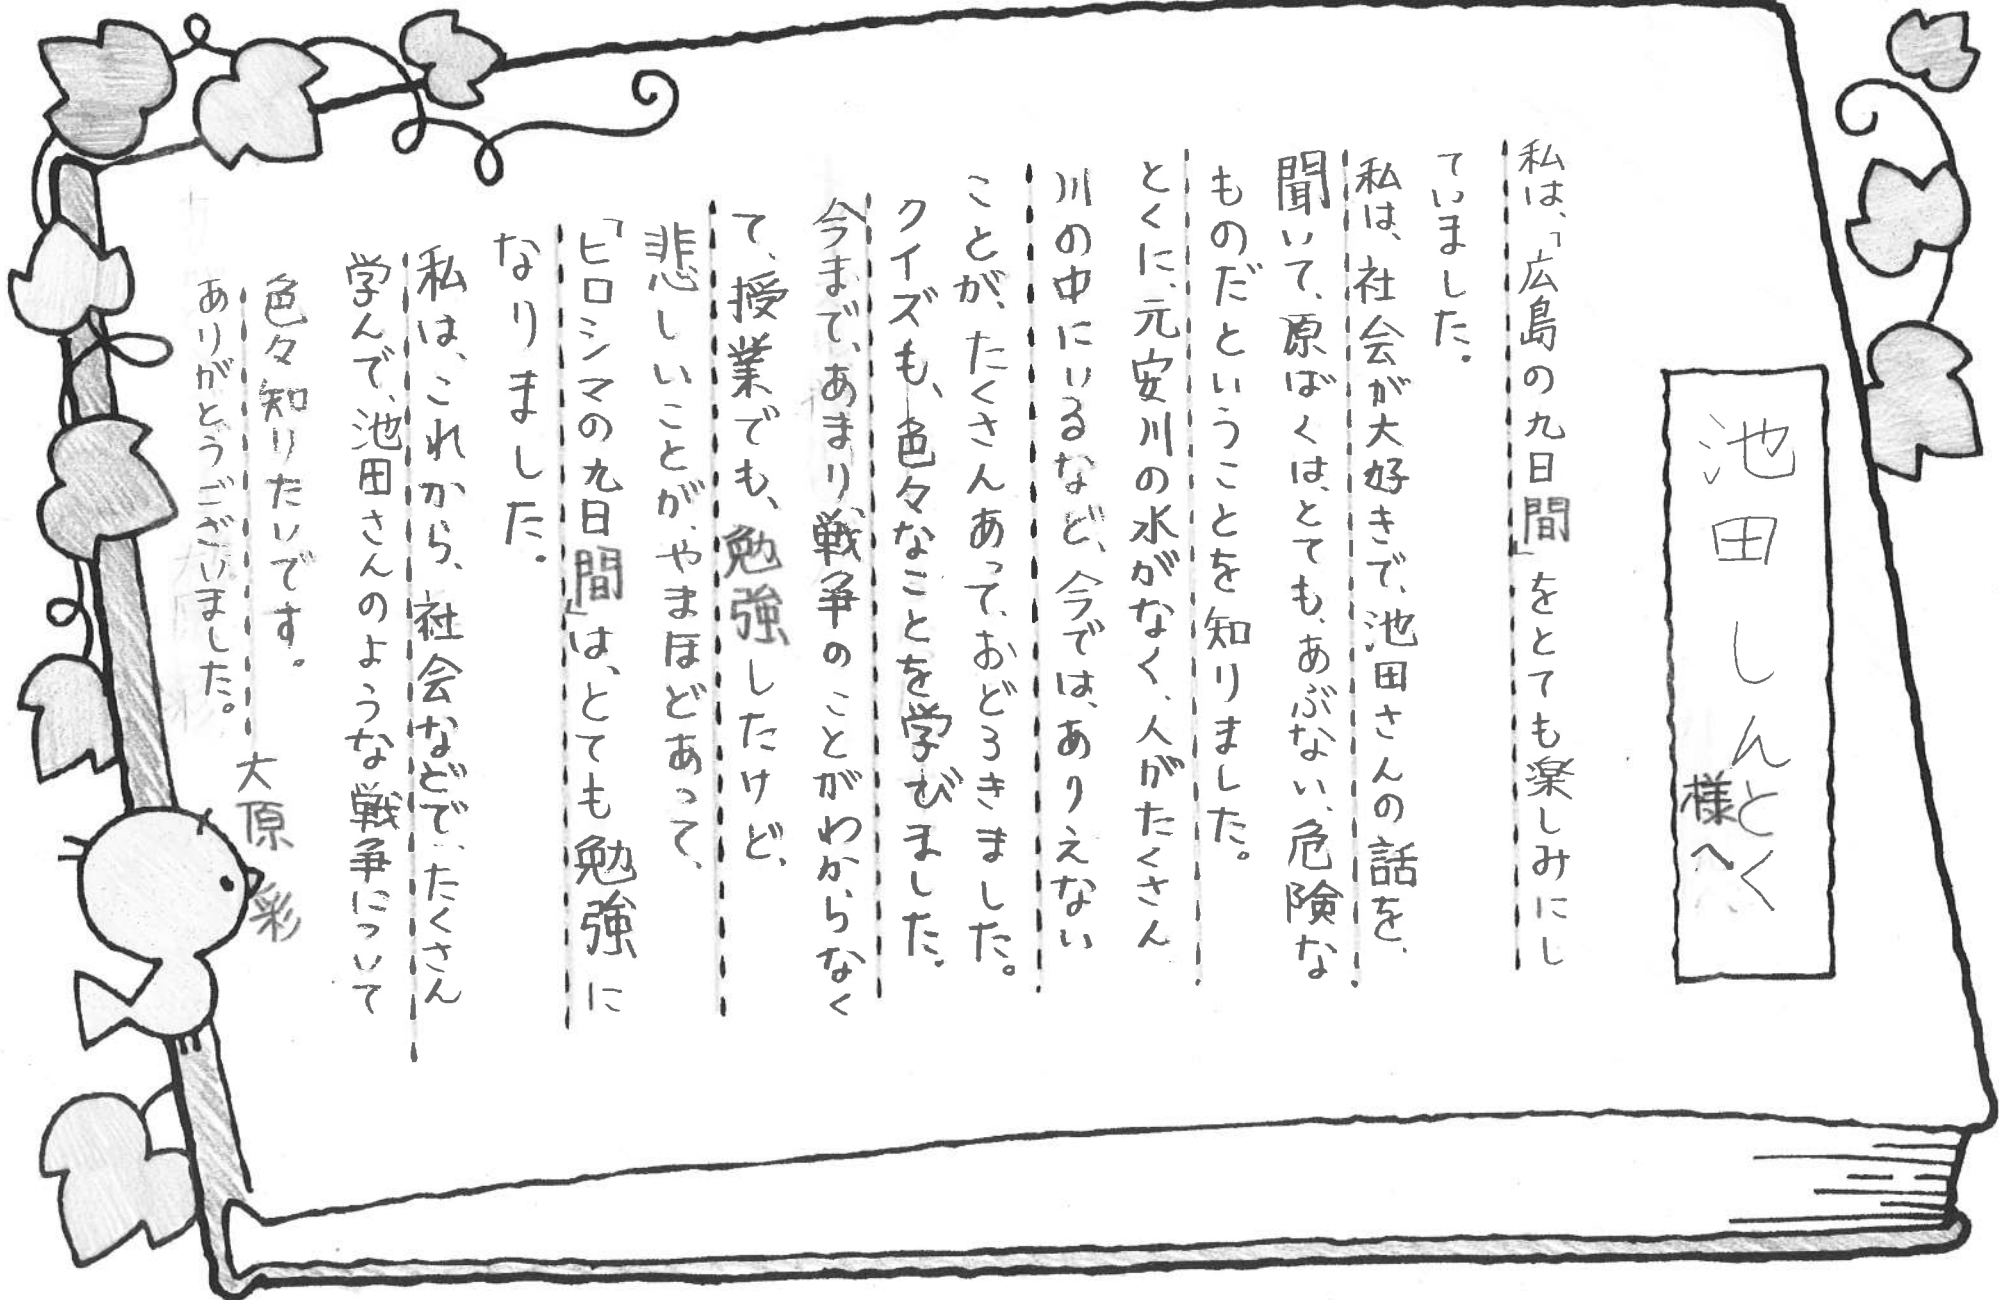 池田しんとく
様へ
私は、「広島の九日間」をとても楽しみにし
ていました。
私は、社会が大好きで、池田さんの話を、
聞いて、原ばくは、とても、あぶない、危険な
ものだということを知りました。
とくに、元安川の水がなく、人がたくさん
川の中にいるなど、今では、ありえない
ことが、たくさんあって、おどろきました。
クイズも、色々なことを学びました。
今まで、あまり、戦争のことがわからなく
て、授業でも、勉強したけど、
悲しいことが、やまほどあって、
「ヒロシマの九日間」は、とても勉強に
なりました。
私は、これから、社会などで、たくさん
学んで、池田さんのような戦争について
色々知りたいです。
ありがとうございました。
大原 彩